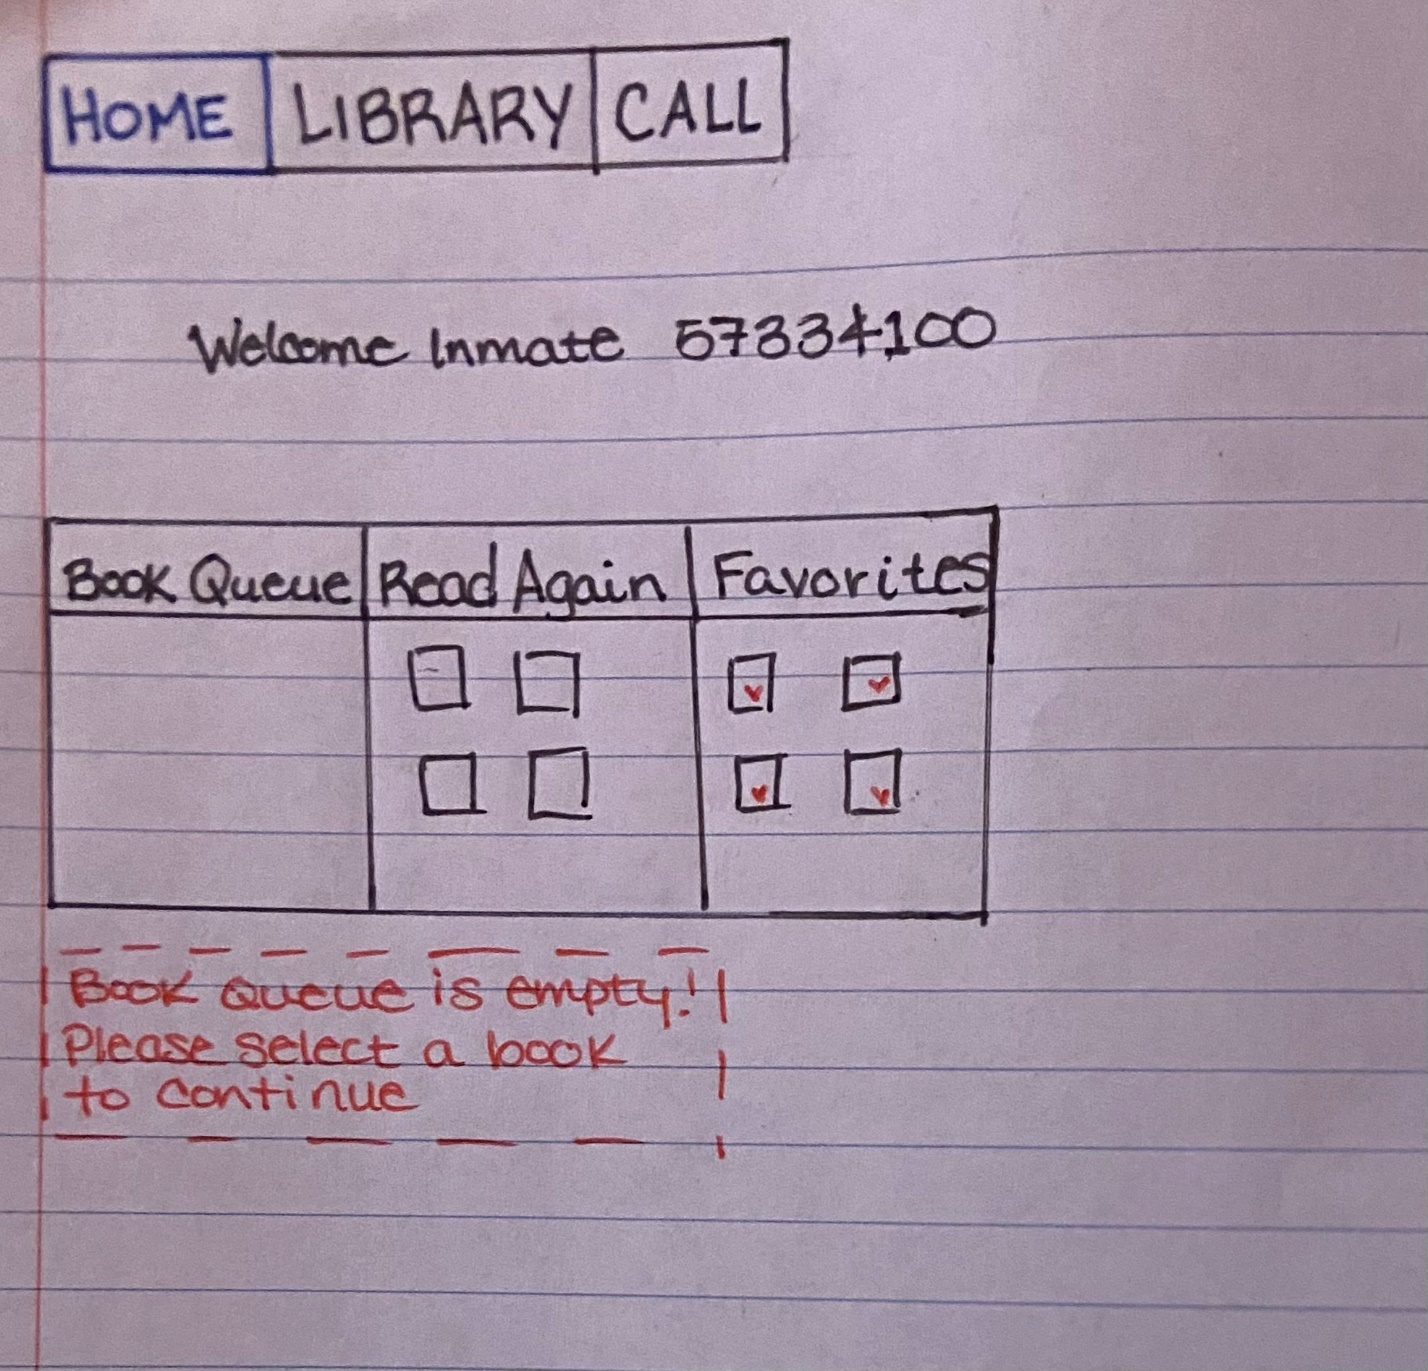 HOME LIBRARY CALL
Welcome Inmate 57334100
Book Queue Read Again Favorites
Book Queue is empty!
Please select a book
to continue